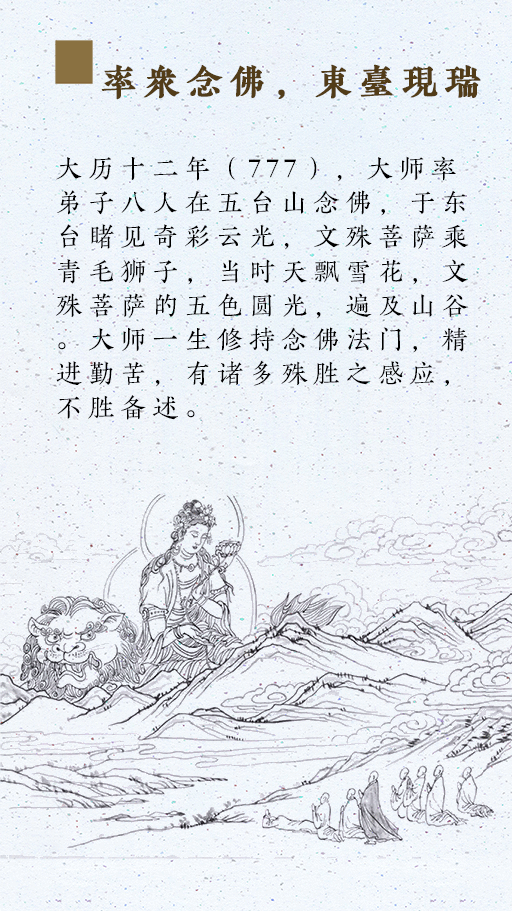 率衆念佛，東臺現瑞
大历十二年（777），大师率
弟子八人在五台山念佛，于东
台睹见奇彩云光，文殊菩萨乘
青毛狮子，当时天飘雪花，文
殊菩萨的五色圆光，遍及山谷
。大师一生修持念佛法门，精
进勤苦，有诸多殊胜之感应，
不胜备述。